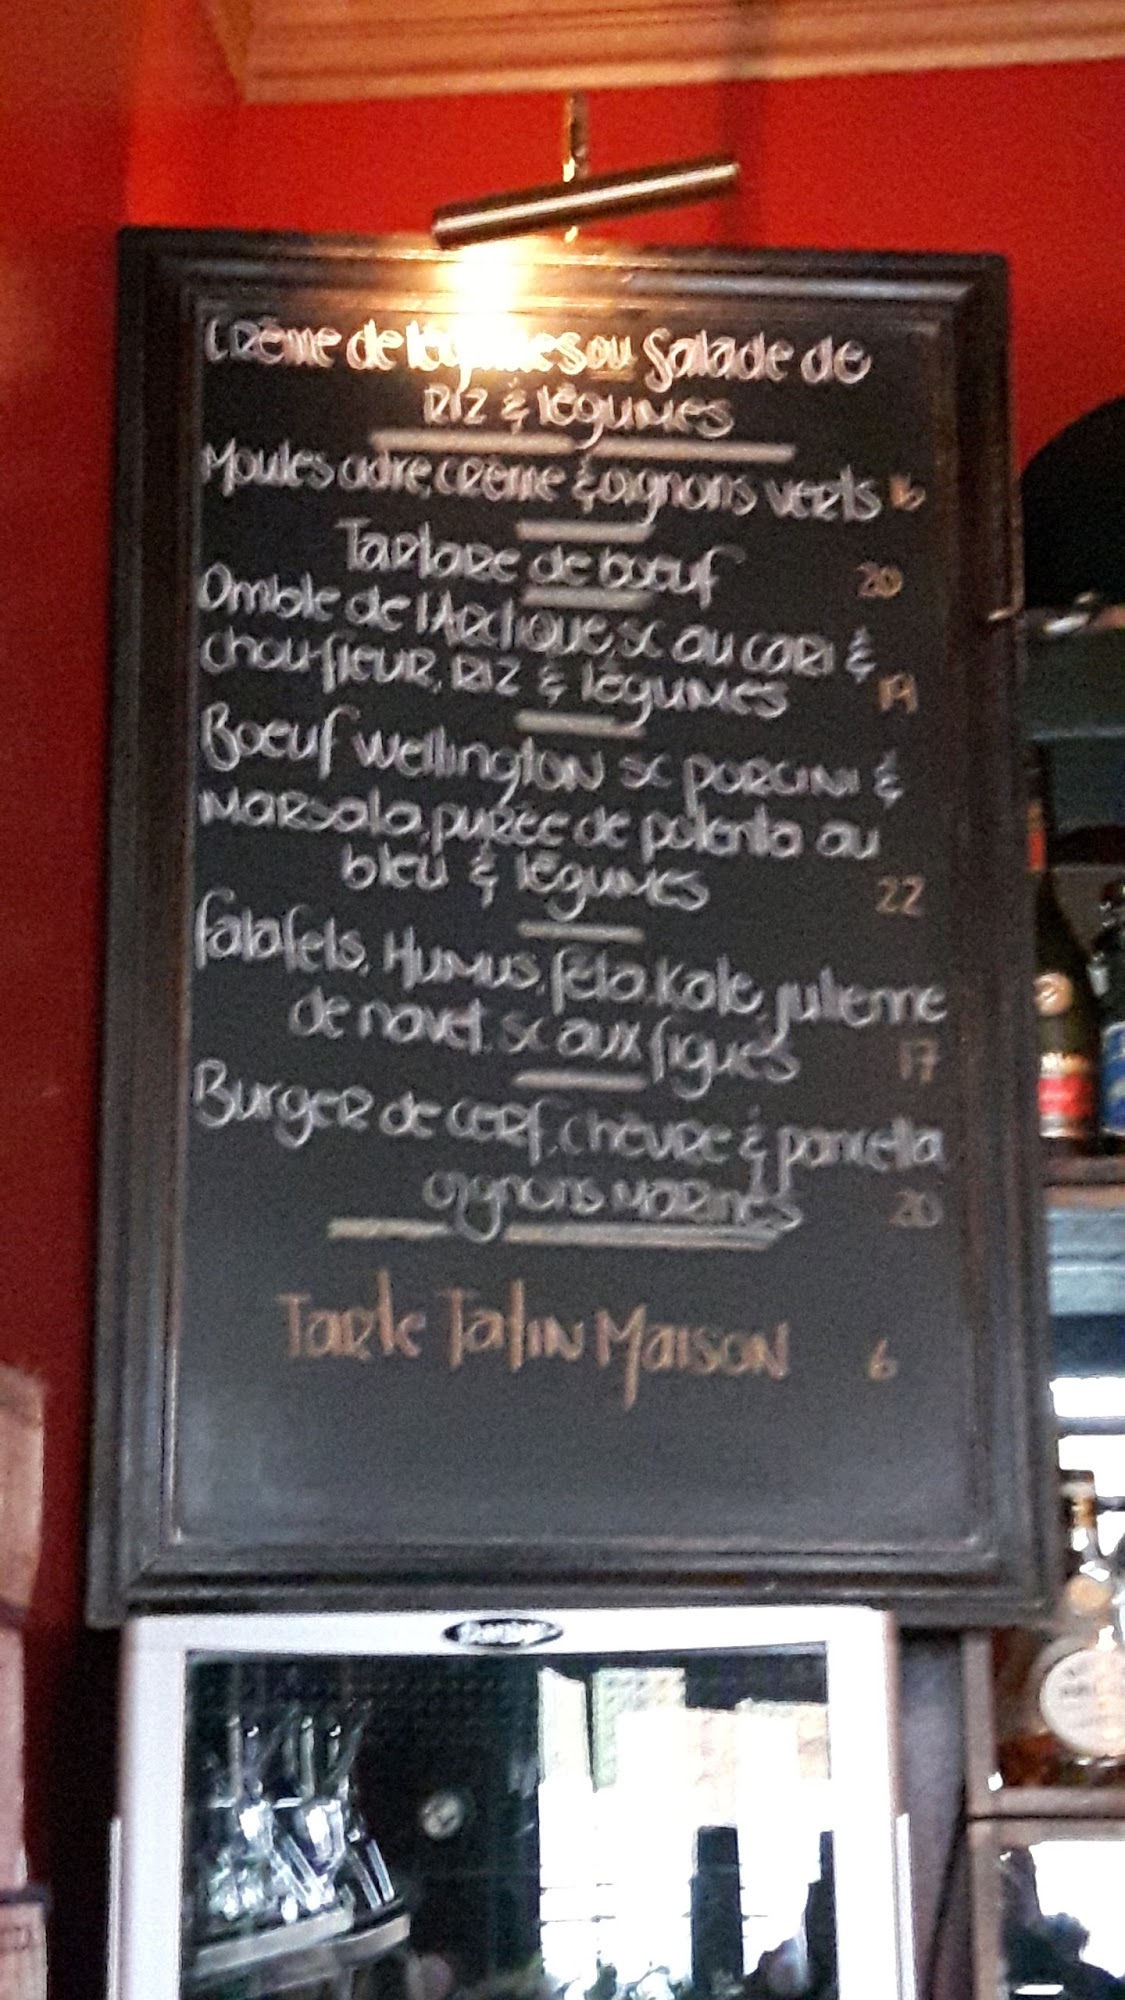 Crème de légumes ou Salade de
Riz & légumes
Moules cidre, crème & oignons verts 16
Tartare de boeuf 20
Omble de l'Arctique, sc au cari &
chou-fleur, Riz & légumes 19
Boeuf Wellington sc porcini &
Marsala, purée de polenta au
bleu & légumes 22
Falafels, Humus, féta, Kale, julienne
de navet, sc aux figues 17
Burger de cerf, chèvre & pancetta
oignons marinés 20
Tarte Tatin Maison 6